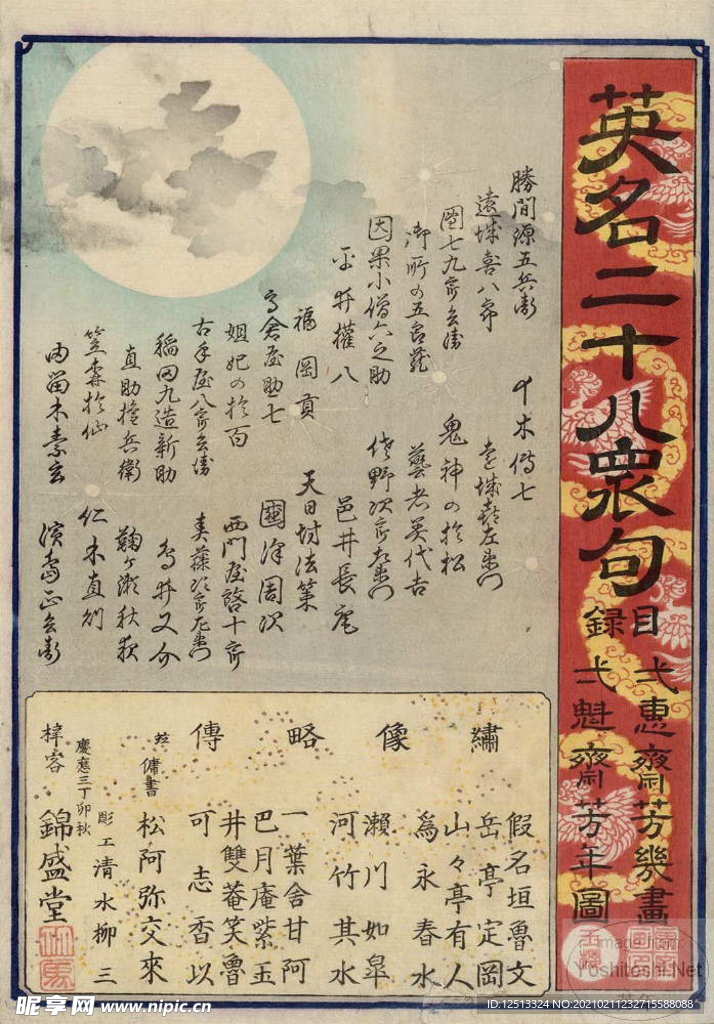 英名二十八衆句
目録
一蕙齋芳幾畫
一魁齋芳年圖
勝間源五兵衛
十木傳七
遠城喜八郎
遠城喜左衛門
團七九郎兵衛
鬼神の於松
御所の五郎蔵
藝者美代吉
因果小僧六之助
佐野次郎左衛門
平井權八
邑井長庵
福岡貢
天日坊法策
高倉屋助七
國澤周次
姐妃の於百
西門屋啓十郎
古手屋八郎兵衛
直助権兵衛
稲田九造新助
鳥井又介
鞠ヶ瀬秋夜
笠森於仙
仁木直則
由留木素玄
濱島正兵衛
繡像略傳
假名垣魯文
岳亭定岡
山々亭有人
為永春水
瀬川如皐
河竹其水
一葉舎甘阿
巴月庵紫玉
井雙菴笑魯
可志香以
傭書
松阿弥交來
彫工清水柳三
慶應三丁卯秋
梓客
錦盛堂
Image from
Yoshitoshi.Net
昵享网 www.nipic.cn
ID:12513324 NO:20210211232715588088